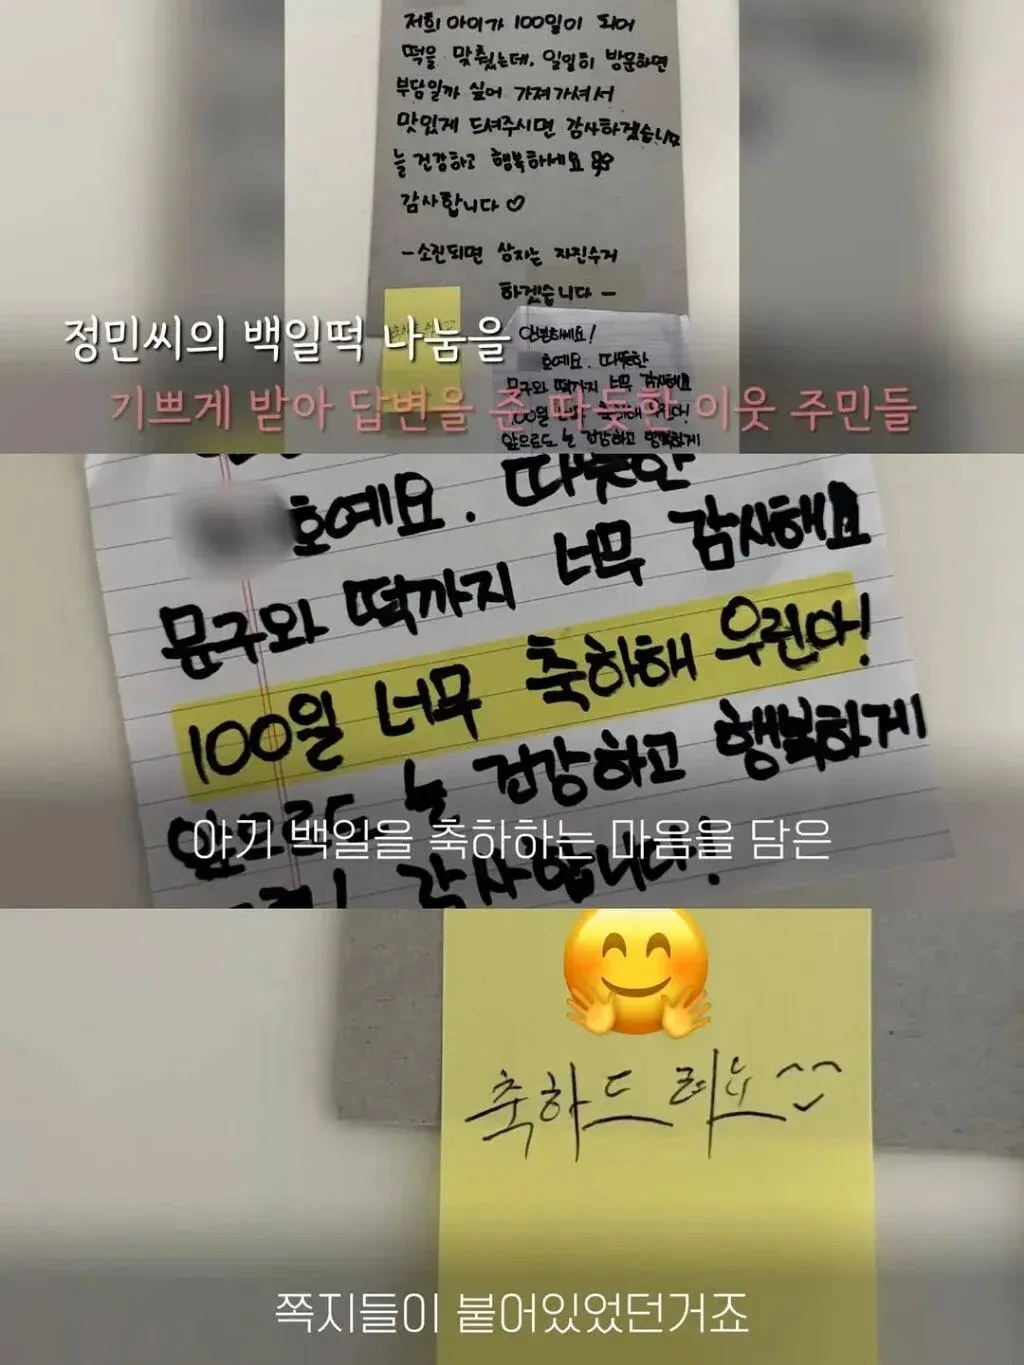 저희 아이가 100일이 되어
떡을 맞췄는데, 일일히 방문하면
부담일까 싶어 가져가셔서
맛있게 드셔주시면 감사하겠습니다
늘 건강하고 행복하세요
감사합니다♡
-소진되면 상자는 자진수거
하겠습니다-
정민씨의 백일떡 나눔을
안녕하세요!
호예요. 따뜻한
문구와 떡까지 너무 감사해요
기쁘게 받아 답변을 준 따듯한 이웃 주민들
100일 너무 축하해 우린아!
앞으로도 늘 건강하고 행복하게
호예요. 따뜻한
문구와 떡까지 너무 감사해요
100일 너무 축하해 우린아!
앞으로도 늘 건강하고 행복하게
아기 백일을 축하하는 마음을 담은
감사합니다!
축하드려요^^
쪽지들이 붙어있었던거죠